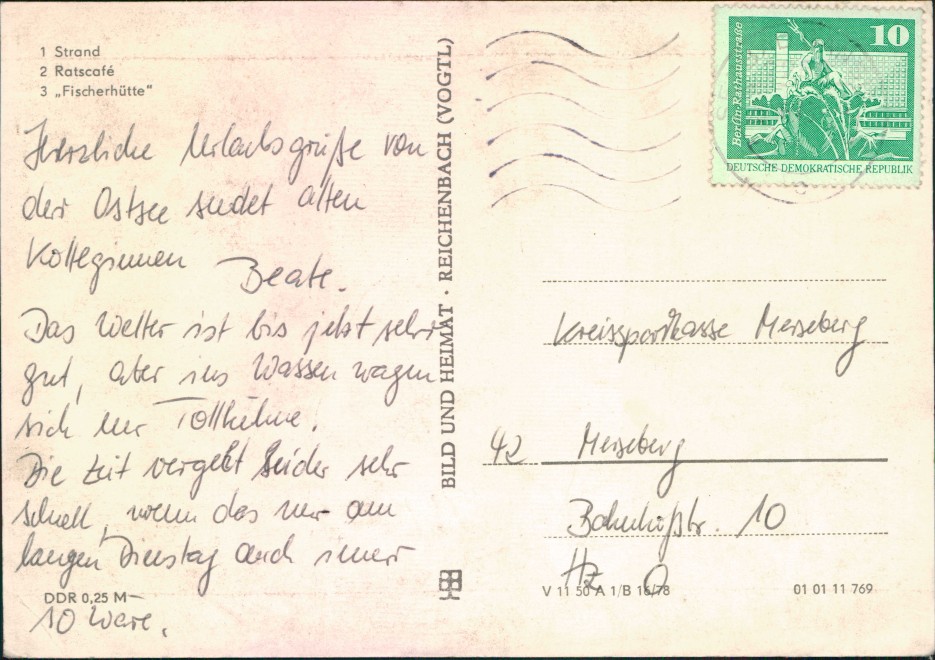 1 Strand
2 Ratscafé
3 „Fischerhütte“
Herzliche Urlaubsgrüße von
der Ostsee sendet allen
Kolleginnen
Beate.
Das Wetter ist bis jetzt sehr
gut, aber ins Wasser wagen
sich nur Tollkühne.
Die Zeit vergeht leider sehr
schnell, wenn das nur am
langen Dienstag auch immer
so wäre.
DDR 0,25 M
BILD UND HEIMAT · REICHENBACH (VOGTL)
10
Berlin · Rathausstraße
DEUTSCHE DEMOKRATISCHE REPUBLIK
Kreissparkasse Merseberg
42 Merseberg
Bahnhofstr. 10
V 11 50 A 1/B 16/78
01 01 11 769